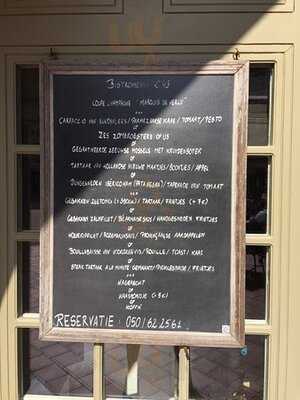 BISTROMENU €45
COUPE CHAMPAGNE "MARQUIS DE
CARPACCIO VAN RUNDVLEES / PARMEZAANSE KAAS / TOMAAT / PESTO
OF
ZES ZOMEROESTERS OF US
OF
GEGRATINEERDE ZEEUWSE MOSSELS MET KRUIDENBOTER
OF
TARTAAR VAN HOLLANDSE NIEUWE MAATJES / BOONTJES / APPEL
OF
DUNGESNEDEN IBERICOHAM (PATA NEGRA) / TAPENADE VAN TOMAAT
GEBAKKEN ZEETONG / TARTAAR / FRIETJES (+ 9€)
OF
GEBAKKEN ZALMFILET / BEARNAISESAUS / HANDGESNEDEN FRIETJES
OF
HOEVEFILET / ROZEMARIJNSAUS / PROVENÇAALSE AARDAPPELEN
OF
BOUILLABAISSE VAN NOORDZEEVIS / ROUILLE / TOAST / KAAS
OF
STEAK TARTAAR À LA MINUTE GEMAAKT / FRIETJES
NAGERECHT
OF
KAASBORDJE (+5€)
OF
KOFFIE
RESERVATIE : 050/62 2561